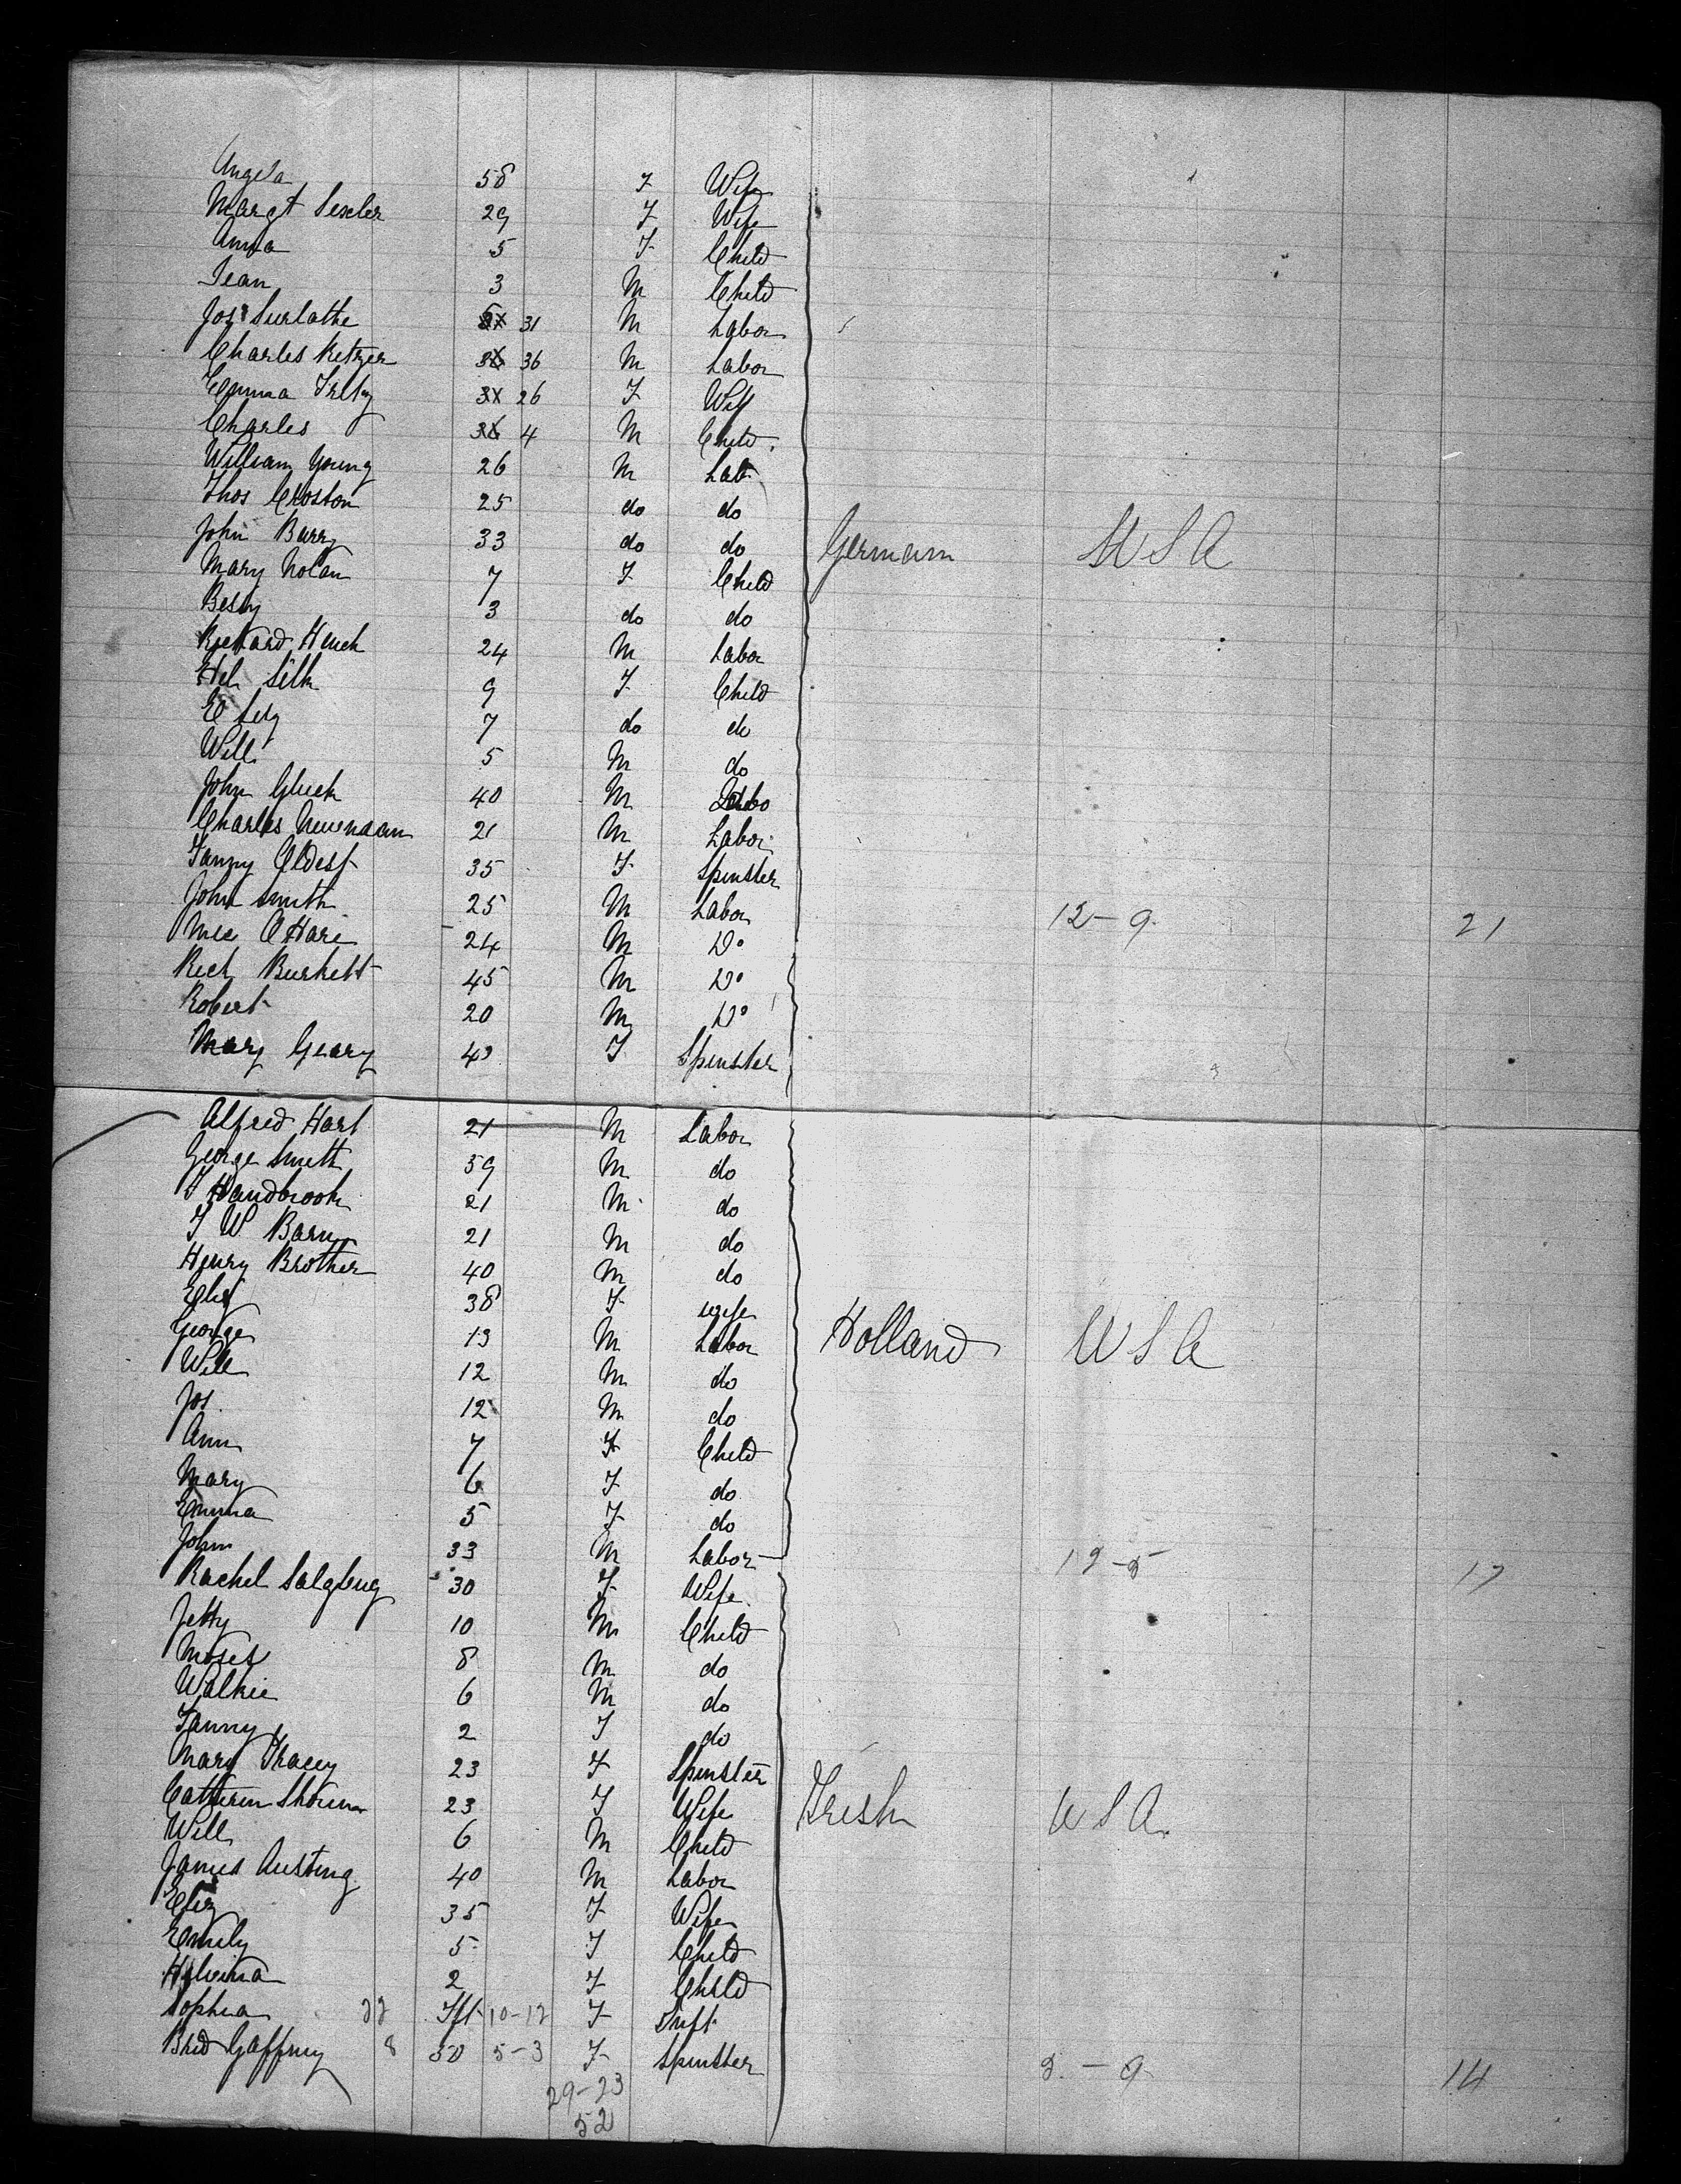 Angela 58 F Wife
Margt Sexler 29 F Wife
Anna 5 F Child
Jean 3 M Child
Jos Surlathe 31 M Labor
Charles Ketzer 36 36 M Labor
Emma 26 F Wif
Charles 36 4 M Child
William Young 26 M Lab
Thos Croston 25 do do
John Barry 33 do do German USA
Mary Nolan 7 F Child
Bessy 3 do do
Richard Hench 24 M Labor
Hel Silk 9 F Child
7 do do
Will 5 M do
John Gluck 40 M
Charles 21 M Labor
Fanny Oldest 35 F Spinster
John Smith 25 M Labor 12-9 21
OHare 24 M Do
Rich Burkett 45 M Do
Robert 20 M Do
Mary Geary 40 F Spinster
Alfred Hart 21 M Labor
George Smith 59 M do
F Handbrook 21 M do
F W Barn 21 M do
Henry Brother 40 M do
Eliz 38 F wife
George 13 M Labor Holland USA
Will 12 M do
Jos 12 M do
Ann 7 F Child
Mary 6 F do
Emma 5 F do
John 33 M Labor 12-5 17
Rachel Salzbug 30 F Wife
Jetty 10 M Child
Moses 8 M do
Walkie 6 M do
Fanny 2 F do
Mary Tracey 23 F Spinster
Catheren 23 F Wife Irish USA
Will 6 M Child
James Austing 40 M Labor
Eliz 35 F Wife
Emily 5 F Child
2 F Child
Sophia 22 Ift 10-12 F Inft
Brid Gaffney 8 50 5-3 F Spinster 5-9 14
29-23
52